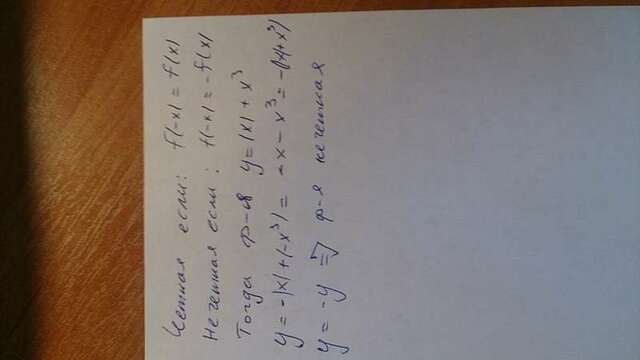 Четная если: f(-x) = f(x)
Нечетная если: f(-x) = -f(x)
Тогда ф-ия y = |x| + x³
y = -|x| + (-x³) = -x - x³ = -(x+x³)
y = -y ⇒ ф-я нечетная